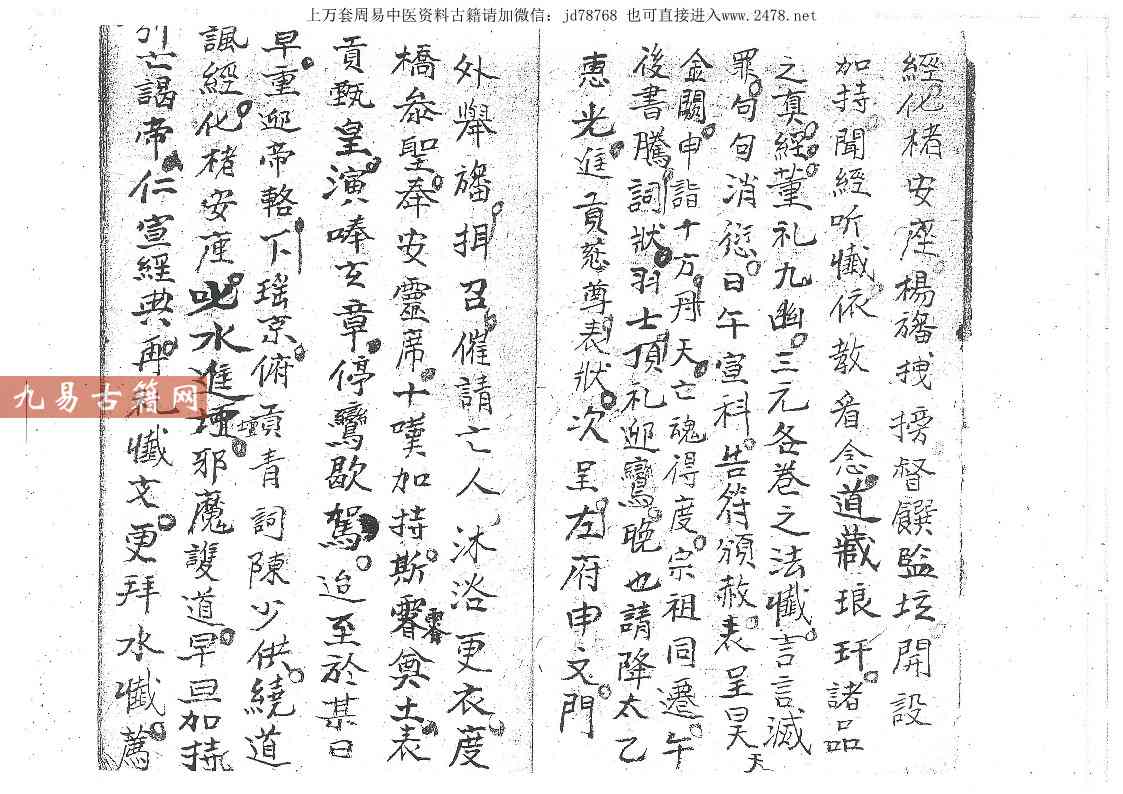 上万套周易中医资料古籍请加微信: jd78768 也可直接进入www.2478.net
經化楮安座。楊旛拽榜督饌監坛開設
加持聞經听懺。依教看念。道藏琅玕。諸品
之真經。董礼九幽。三元各卷之法懺。言言滅
罪。句句消愆。日午宣科。告符頒赦。表呈昊天
金闕。申詣十方。丹天。亡魂得度。宗祖同遷。午
後書騰詞狀。羽士頂礼迎鸞。晚也請降太乙
恵光。進貢慈尊表狀。次呈左府申文。門
外舉旛。拑召催請亡人。沐浴更衣。度
橋叅聖。奉安靈席。十嘆加持。斯霄奠土。表
貢甄皇。演唪玄章。停鸞歇駕。迨至於某日
早。重迎帝輅。下瑤京。俯貢青詞。陳少供。繞道
諷經。化楮安座。叱水進壇。邪魔護道。早旦加持
亡謁帝。仁宣經典。再礼懺文。更拜水懺。薦
九易古籍网